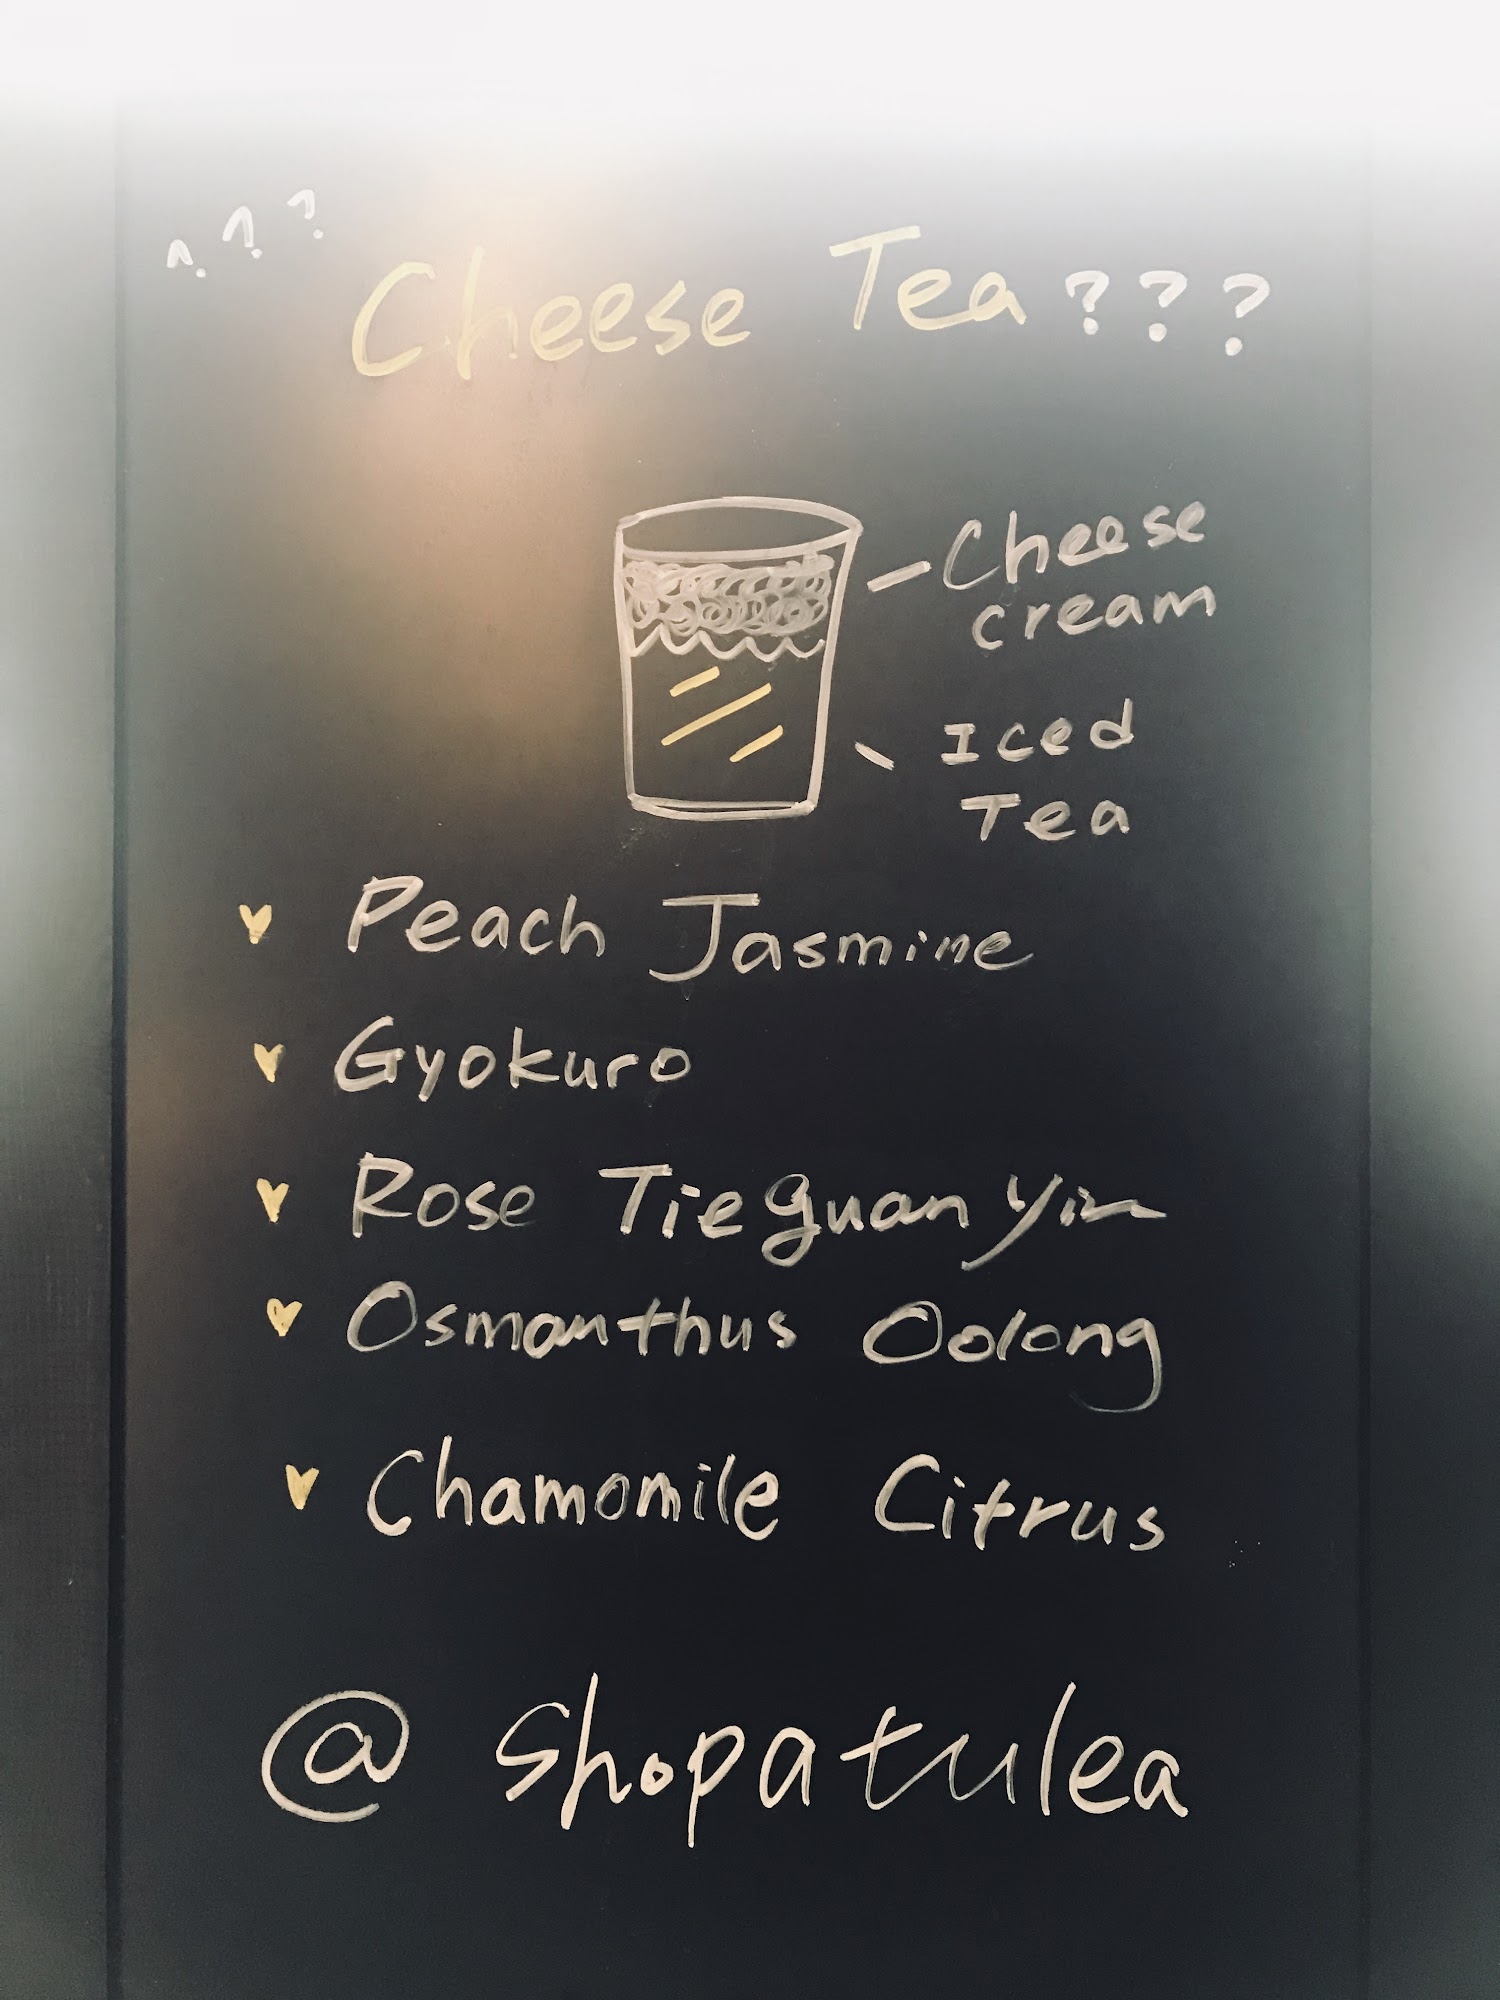 ??? Cheese Tea ???
Cheese
cream
Iced
Tea
Peach Jasmine
Gyokuro
Rose Tieguanyin
Osmanthus Oolong
Chamomile Citrus
@shopatulea